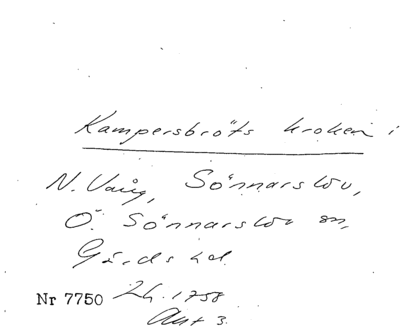 Kampersbröts kroken i
N. Vång, Sönnarslöv,
Ö. Sönnarslöv sn,
Gärds hd
Nr 7750 24. 1758
Akt 3.